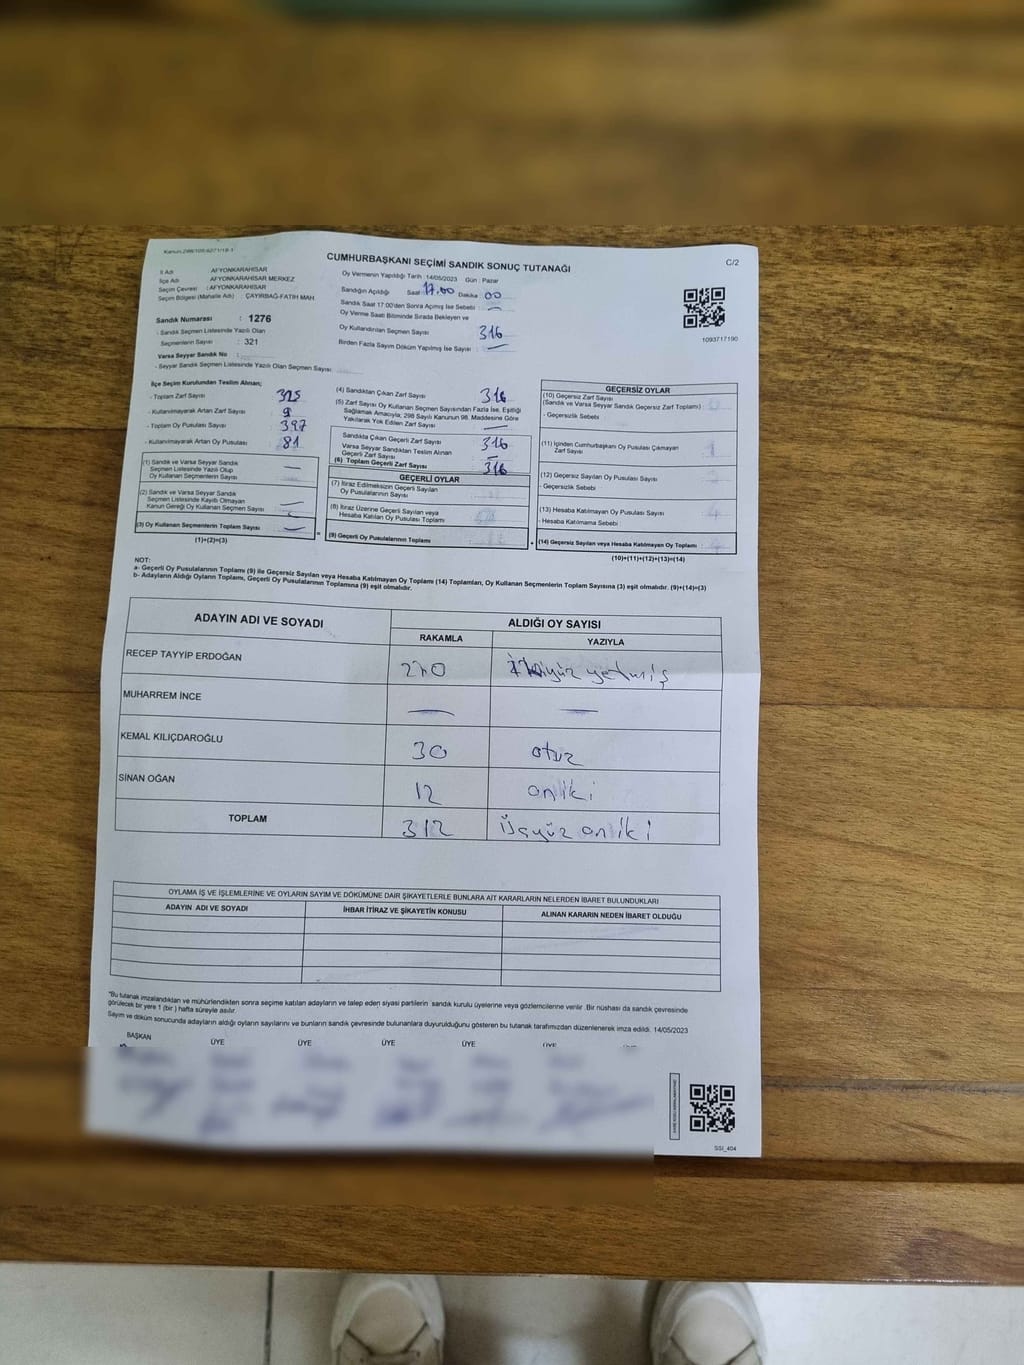 Kanun:298/105/6271/19-1
CUMHURBAŞKANI SEÇİMİ SANDIK SONUÇ TUTANAĞI
C/2
İl Adı AFYONKARAHİSAR
İlçe Adı AFYONKARAHİSAR MERKEZ
Seçim Çevresi : AFYONKARAHİSAR
Seçim Bölgesi (Mahalle Adı) : ÇAYIRBAĞ-FATİH MAH.
Sandık Numarası : 1276
- Sandık Seçmen Listesinde Yazılı Olan
Seçmenlerin Sayısı : 321
Varsa Seyyar Sandık No :
- Seyyar Sandık Seçmen Listesinde Yazılı Olan Seçmen Sayısı
Oy Vermenin Yapıldığı Tarih : 14/05/2023 Gün : Pazar
Sandığın Açıldığı Saat 17.00 Dakika 00
Sandık Saat 17:00'den Sonra Açımış İse Sebebi : —
Oy Verme Saati Bitiminde Sırada Bekleyen ve
Oy Kullandırılan Seçmen Sayısı 316
Birden Fazla Sayım Döküm Yapılmış İse Sayısı : —
1093717190
İlçe Seçim Kurulundan Teslim Alınan;
- Toplam Zarf Sayısı 325
- Kullanılmayarak Artan Zarf Sayısı 9
- Toplam Oy Pusulası 397
- Kullanılmayarak Artan Oy Pusulası 81
(1) Sandık ve Varsa Seyyar Sandık
Seçmen Listesinde Yazılı Olup
Oy Kullanan Seçmenlerin Sayısı —
(2) Sandık ve Varsa Seyyar Sandık
Seçmen Listesinde Kayıtlı Olmayan
Kanun Gereği Oy Kullanan Seçmen Sayısı
(3) Oy Kullanan Seçmenlerin Toplam Sayısı
(1)+(2)=(3)
(4) Sandıktan Çıkan Zarf Sayısı 316
(5) Zarf Sayısı Oy Kullanan Seçmen Sayısından Fazla İse, Eşitliği
Sağlamak Amacıyla; 298 Sayılı Kanunun 98. Maddesine Göre
Yakılarak Yok Edilen Zarf Sayısı —
Sandıkta Çıkan Geçerli Zarf Sayısı 316
Varsa Seyyar Sandıktan Teslim Alınan
Geçerli Zarf Sayısı —
(6) Toplam Geçerli Zarf Sayısı 316
GEÇERLİ OYLAR
(7) İtiraz Edilmeksizin Geçerli Sayılan
Oy Pusulalarının Sayısı
(8) İtiraz Üzerine Geçerli Sayılan veya
Hesaba Katılan Oy Pusulası Toplamı
(9) Geçerli Oy Pusulalarının Toplamı
GEÇERSİZ OYLAR
(10) Geçersiz Zarf Sayısı
(Sandık ve Varsa Seyyar Sandık Geçersiz Zarf Toplamı) :
- Geçersizlik Sebebi
(11) İçinden Cumhurbaşkanı Oy Pusulası Çıkmayan
Zarf Sayısı
(12) Geçersiz Sayılan Oy Pusulası Sayısı
- Geçersizlik Sebebi
(13) Hesaba Katılmayan Oy Pusulası Sayısı
- Hesaba Katılmama Sebebi
(14) Geçersiz Sayılan veya Hesaba Katılmayan Oy Toplamı
(10)+(11)+(12)+(13)=(14)
NOT:
a- Geçerli Oy Pusulalarının Toplamı (9) ile Geçersiz Sayılan veya Hesaba Katılmayan Oy Toplamı (14) Toplamları, Oy Kullanan Seçmenlerin Toplam Sayısına (3) eşit olmalıdır. (9)+(14)=(3)
b- Adayların Aldığı Oyların Toplamı, Geçerli Oy Pusulalarının Toplamına (9) eşit olmalıdır.
ADAYIN ADI VE SOYADI ALDIĞI OY SAYISI
RAKAMLA YAZIYLA
RECEP TAYYİP ERDOĞAN 270 İkiyüz yetmiş
MUHARREM İNCE — —
KEMAL KILIÇDAROĞLU 30 otuz
SİNAN OĞAN 12 oniki
TOPLAM 312 Üçyüz oniki
OYLAMA İŞ VE İŞLEMLERİNE VE OYLARIN SAYIM VE DÖKÜMÜNE DAİR ŞİKAYETLERLE BUNLARA AİT KARARLARIN NELERDEN İBARET BULUNDUKLARI
ADAYIN ADI VE SOYADI İHBAR İTİRAZ VE ŞİKAYETİN KONUSU ALINAN KARARIN NEDEN İBARET OLDUĞU
"Bu tutanak imzalandıktan ve mühürlendikten sonra seçime katılan adayların ve talep eden siyasi partilerin sandık kurulu üyelerine veya gözlemcilerine verilir. Bir nüshası da sandık çevresinde
görülecek bir yere 1 (bir) hafta süreyle asılır.
Sayım ve döküm sonucunda adayların aldığı oyların sayılarını ve bunların sandık çevresinde bulunanlara duyurulduğunu gösteren bu tutanak tarafımızdan düzenlenerek imza edildi. 14/05/2023
BAŞKAN ÜYE ÜYE ÜYE ÜYE ÜYE
SSI_404